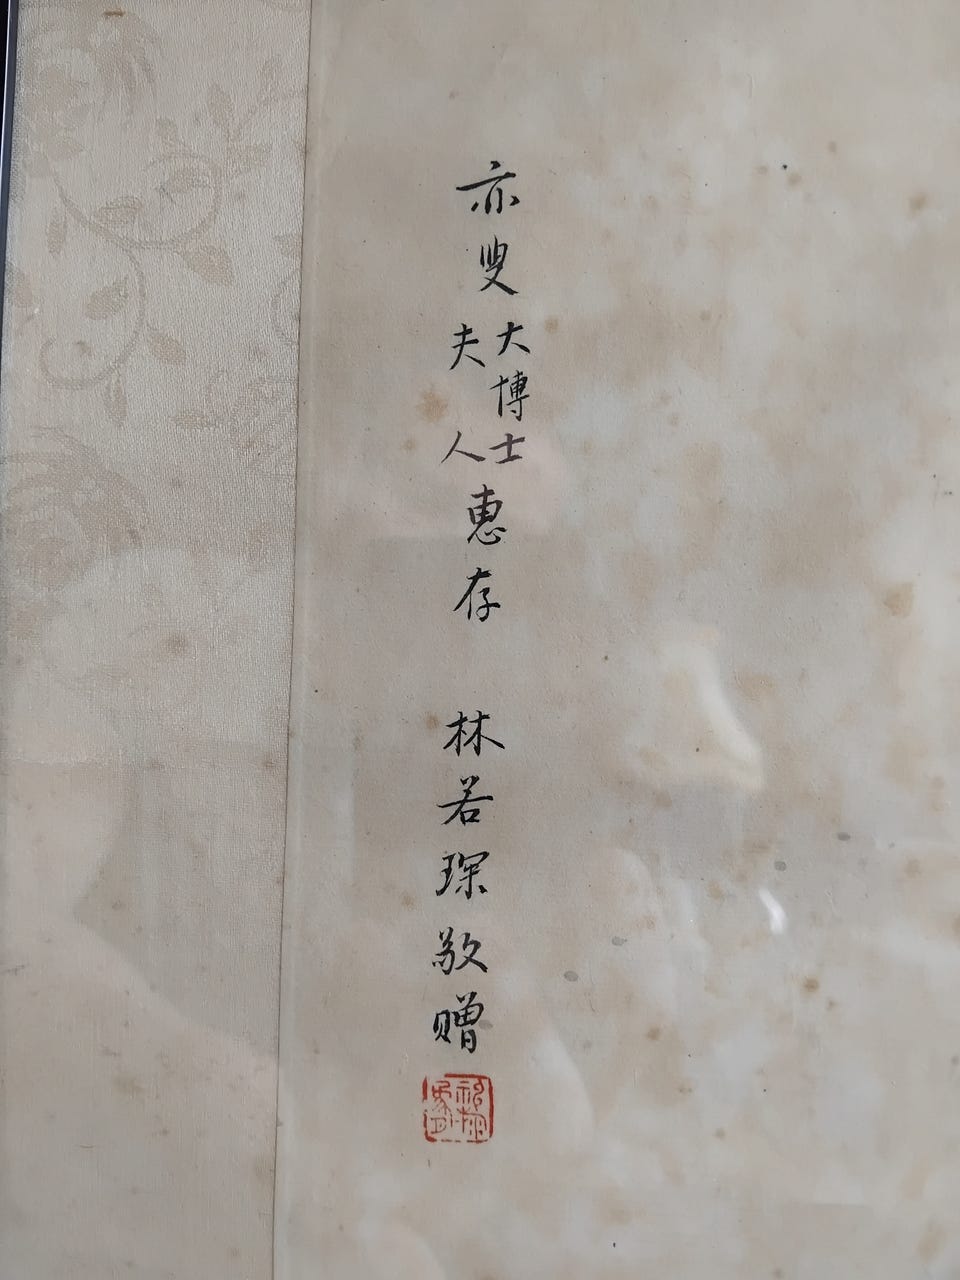 亦叟大博士夫人惠存
林若琛敬赠